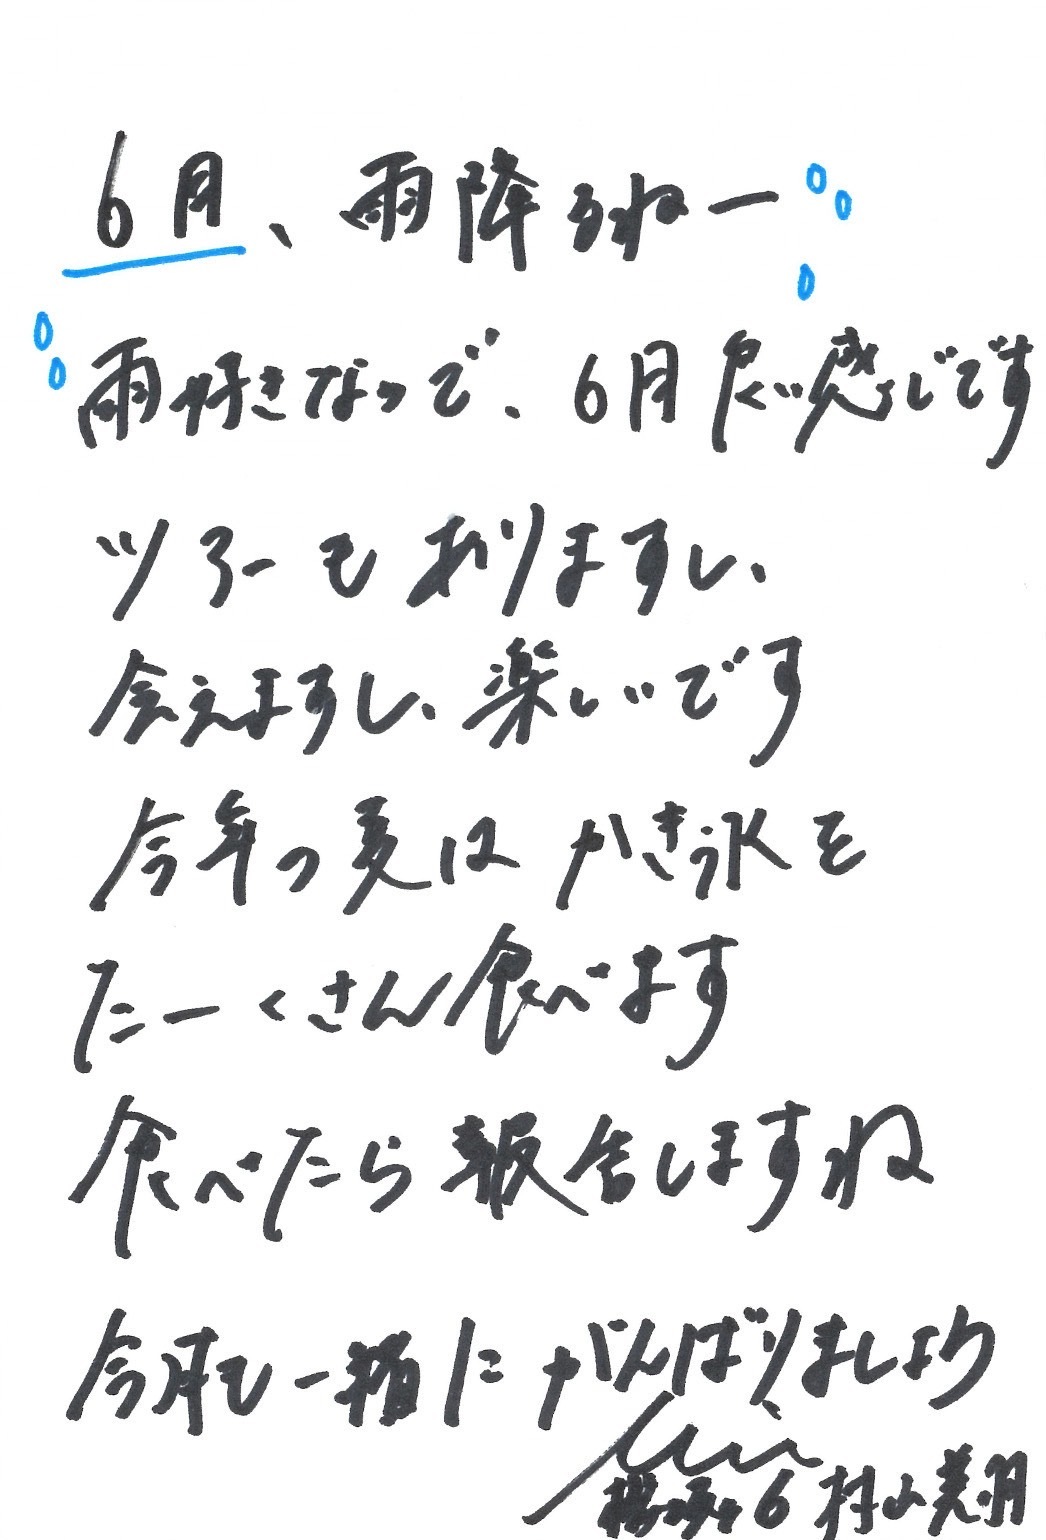 6月、雨降るねー
雨好きなので、6月良い感じです
ツアーもありますし、
会えますし、楽しいです
今年の夏はかき氷を
たーくさん食べます
食べたら報告しますね
今月も一緒にがんばりましょう
櫻坂46 村山美羽